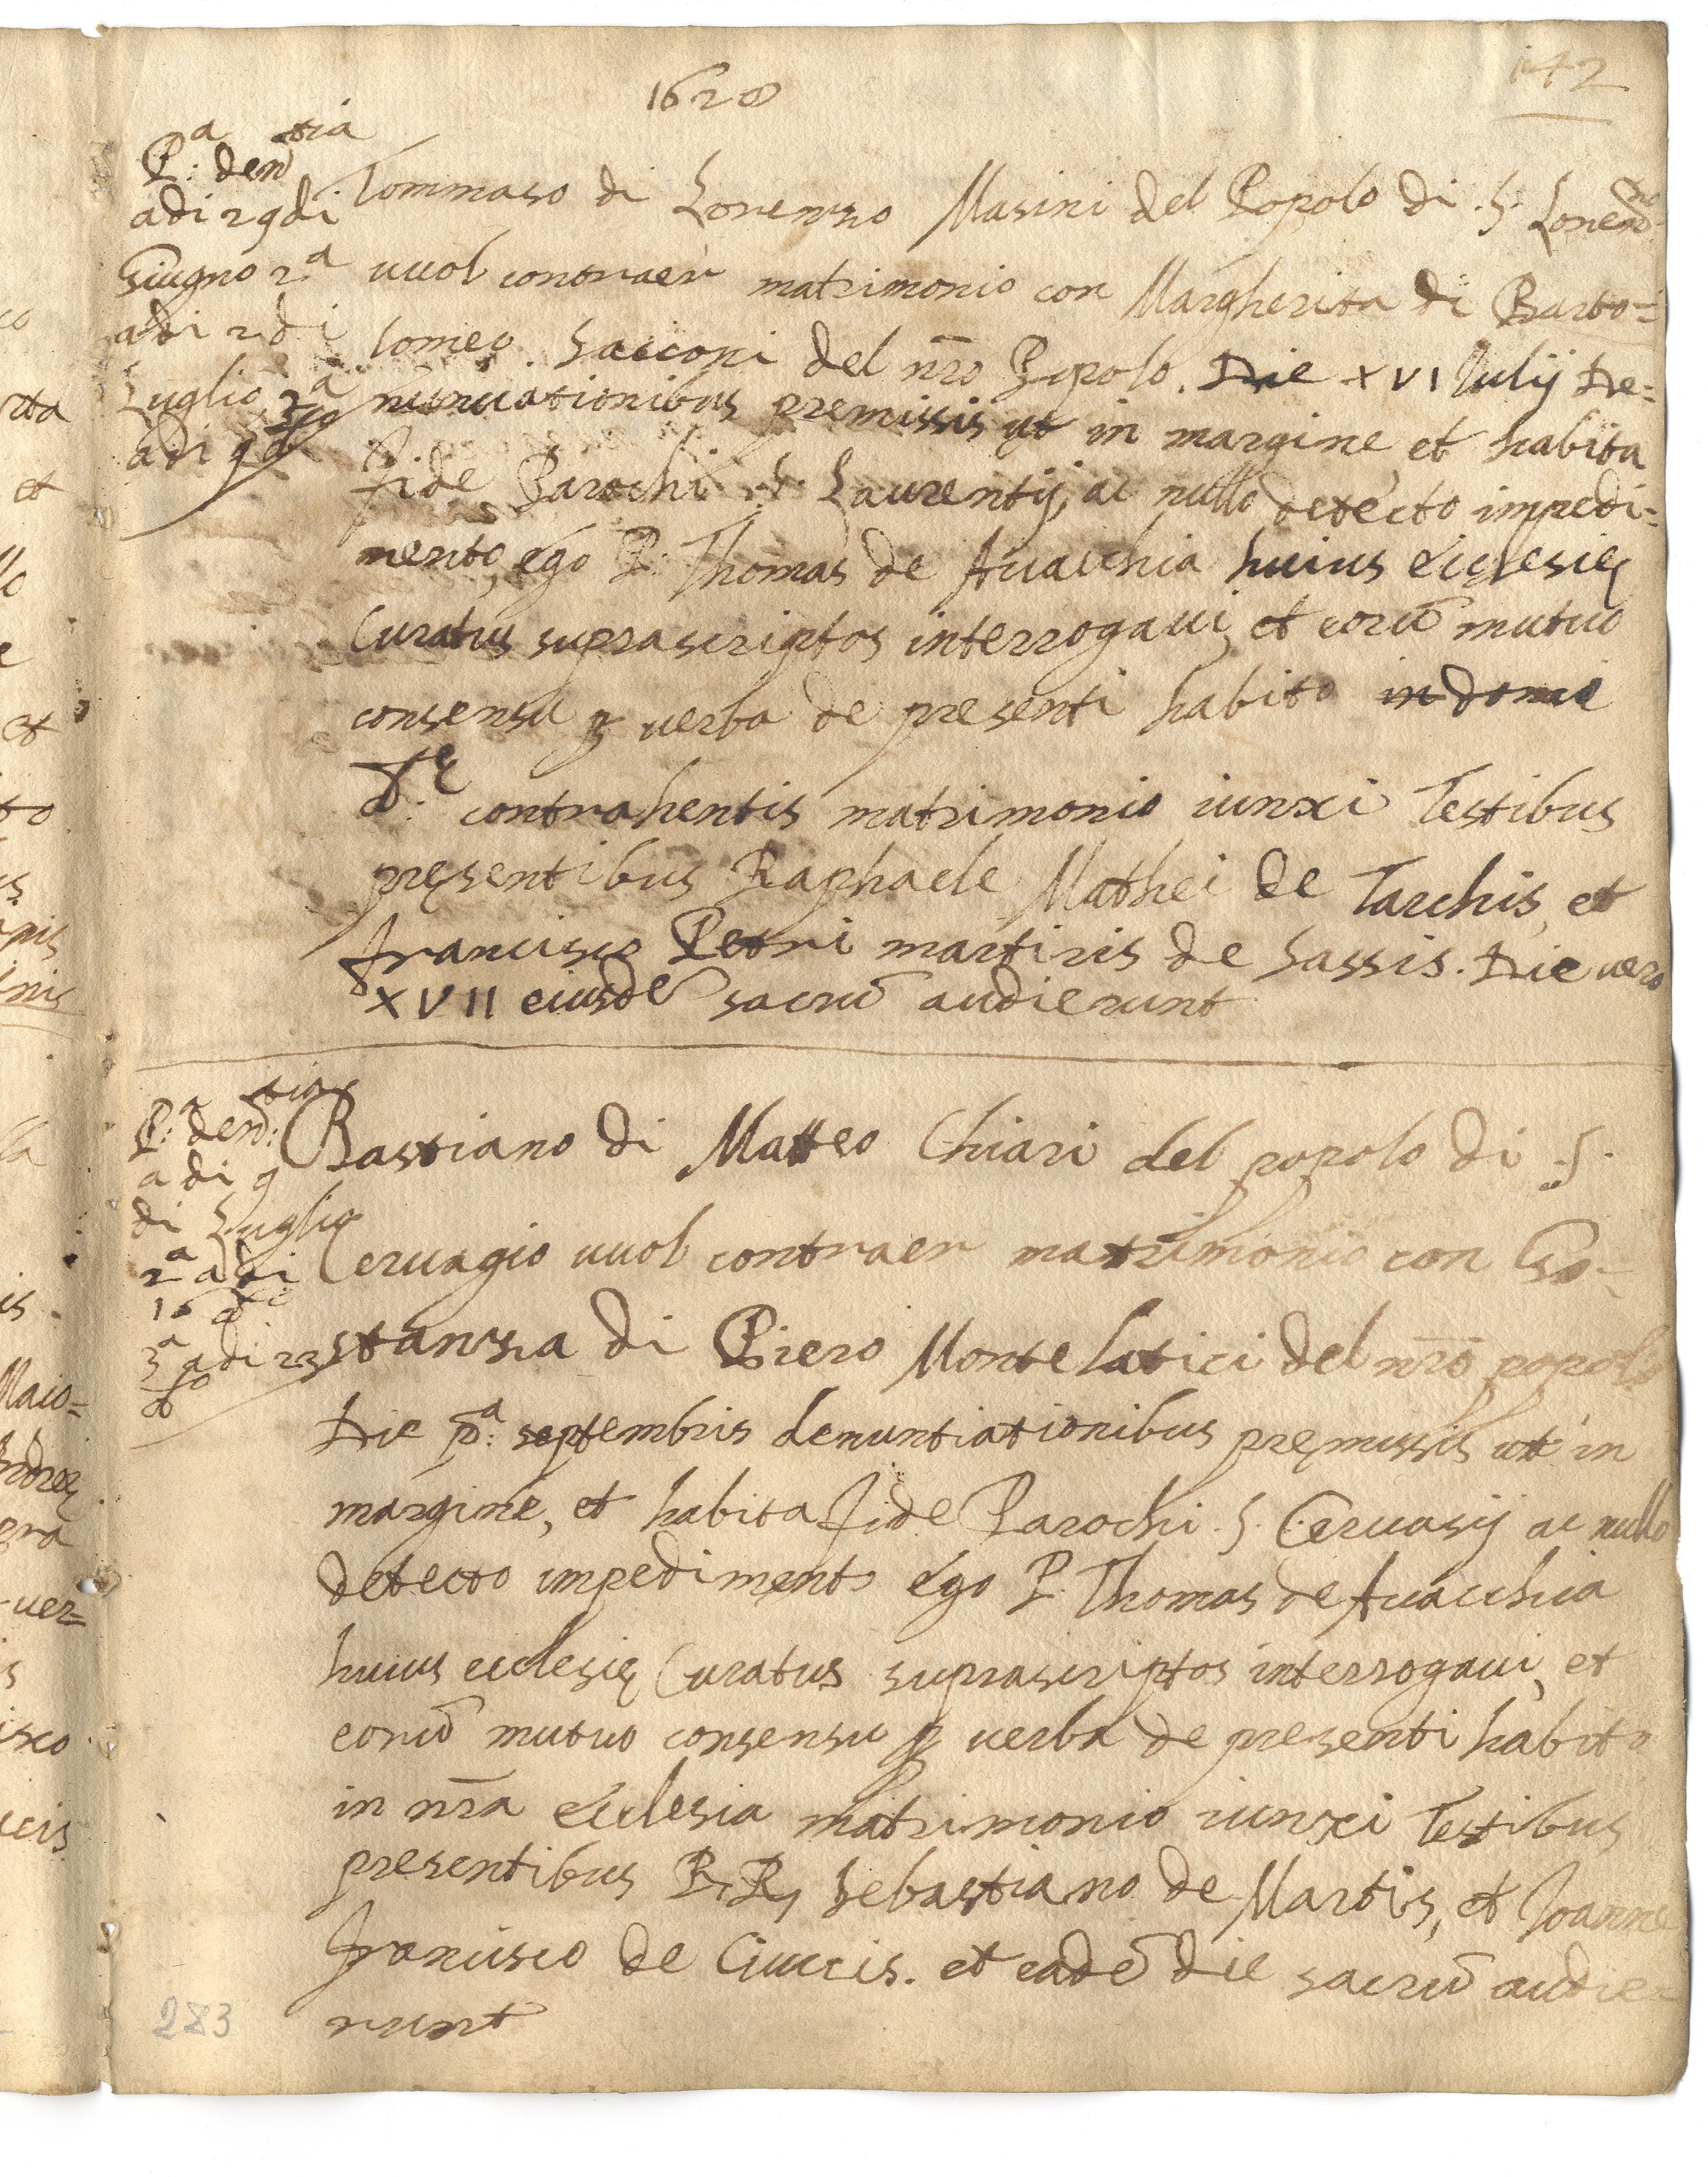 1628
142
P.a den.tia
adi 29 di
Giugno 2.a
adi 2 di
Luglio 3.a
adi 9 d.o
Tommaso di Lorenzo Masini del Popolo di S. Loren.no
vuol contraer matrimonio con Margherita di Barto=
lomeo Sacconi del nr̄o Popolo. Die XVI Iulij De=
nunciationibus premissis ut in margine et habita
fide Parochi S. Laurentij, ac nullo detecto impedi=
mento, ego P. Thomas de Avacchia huius ecclesię
Curatus suprascriptos interrogavi, et eorū mutuo
consensu ꝑ verba de presenti habito in domo
d.ę contrahentis matrimonio iunxi Testibus
pręsentibus Raphaele Mathei de Tarchis, et
Francisco Petri martiris de Sassis. Die vero
XVII eiusdē sacrū audierunt
P.a den.tion
adi 9
di Luglio
2.a adi
16 d.o
3.a adi 23
d.o
Bastiano di Matteo Chiari del popolo di S.
Cervagio vuol contraer matrimonio con Go-
stanza di Piero Montelatici del nr̄o popolo
Die p.a septembris denuntiationibus pręmissis ut in
margine, et habita fide Parochi S. Cervasij ac nullo
detecto impedimento ego P. Thomas de Avacchia
huius ecclesię Curatus suprascriptos interrogavi, et
eorū mutuo consensu ꝑ verba de presenti habito
in nr̄a ecclesia matrimonio iunxi Testibus
presentibus R. P. Sebastiano de Martis, et Joanne
Francisco de Ciuccis. et eadē die sacrū audie-
runt
283